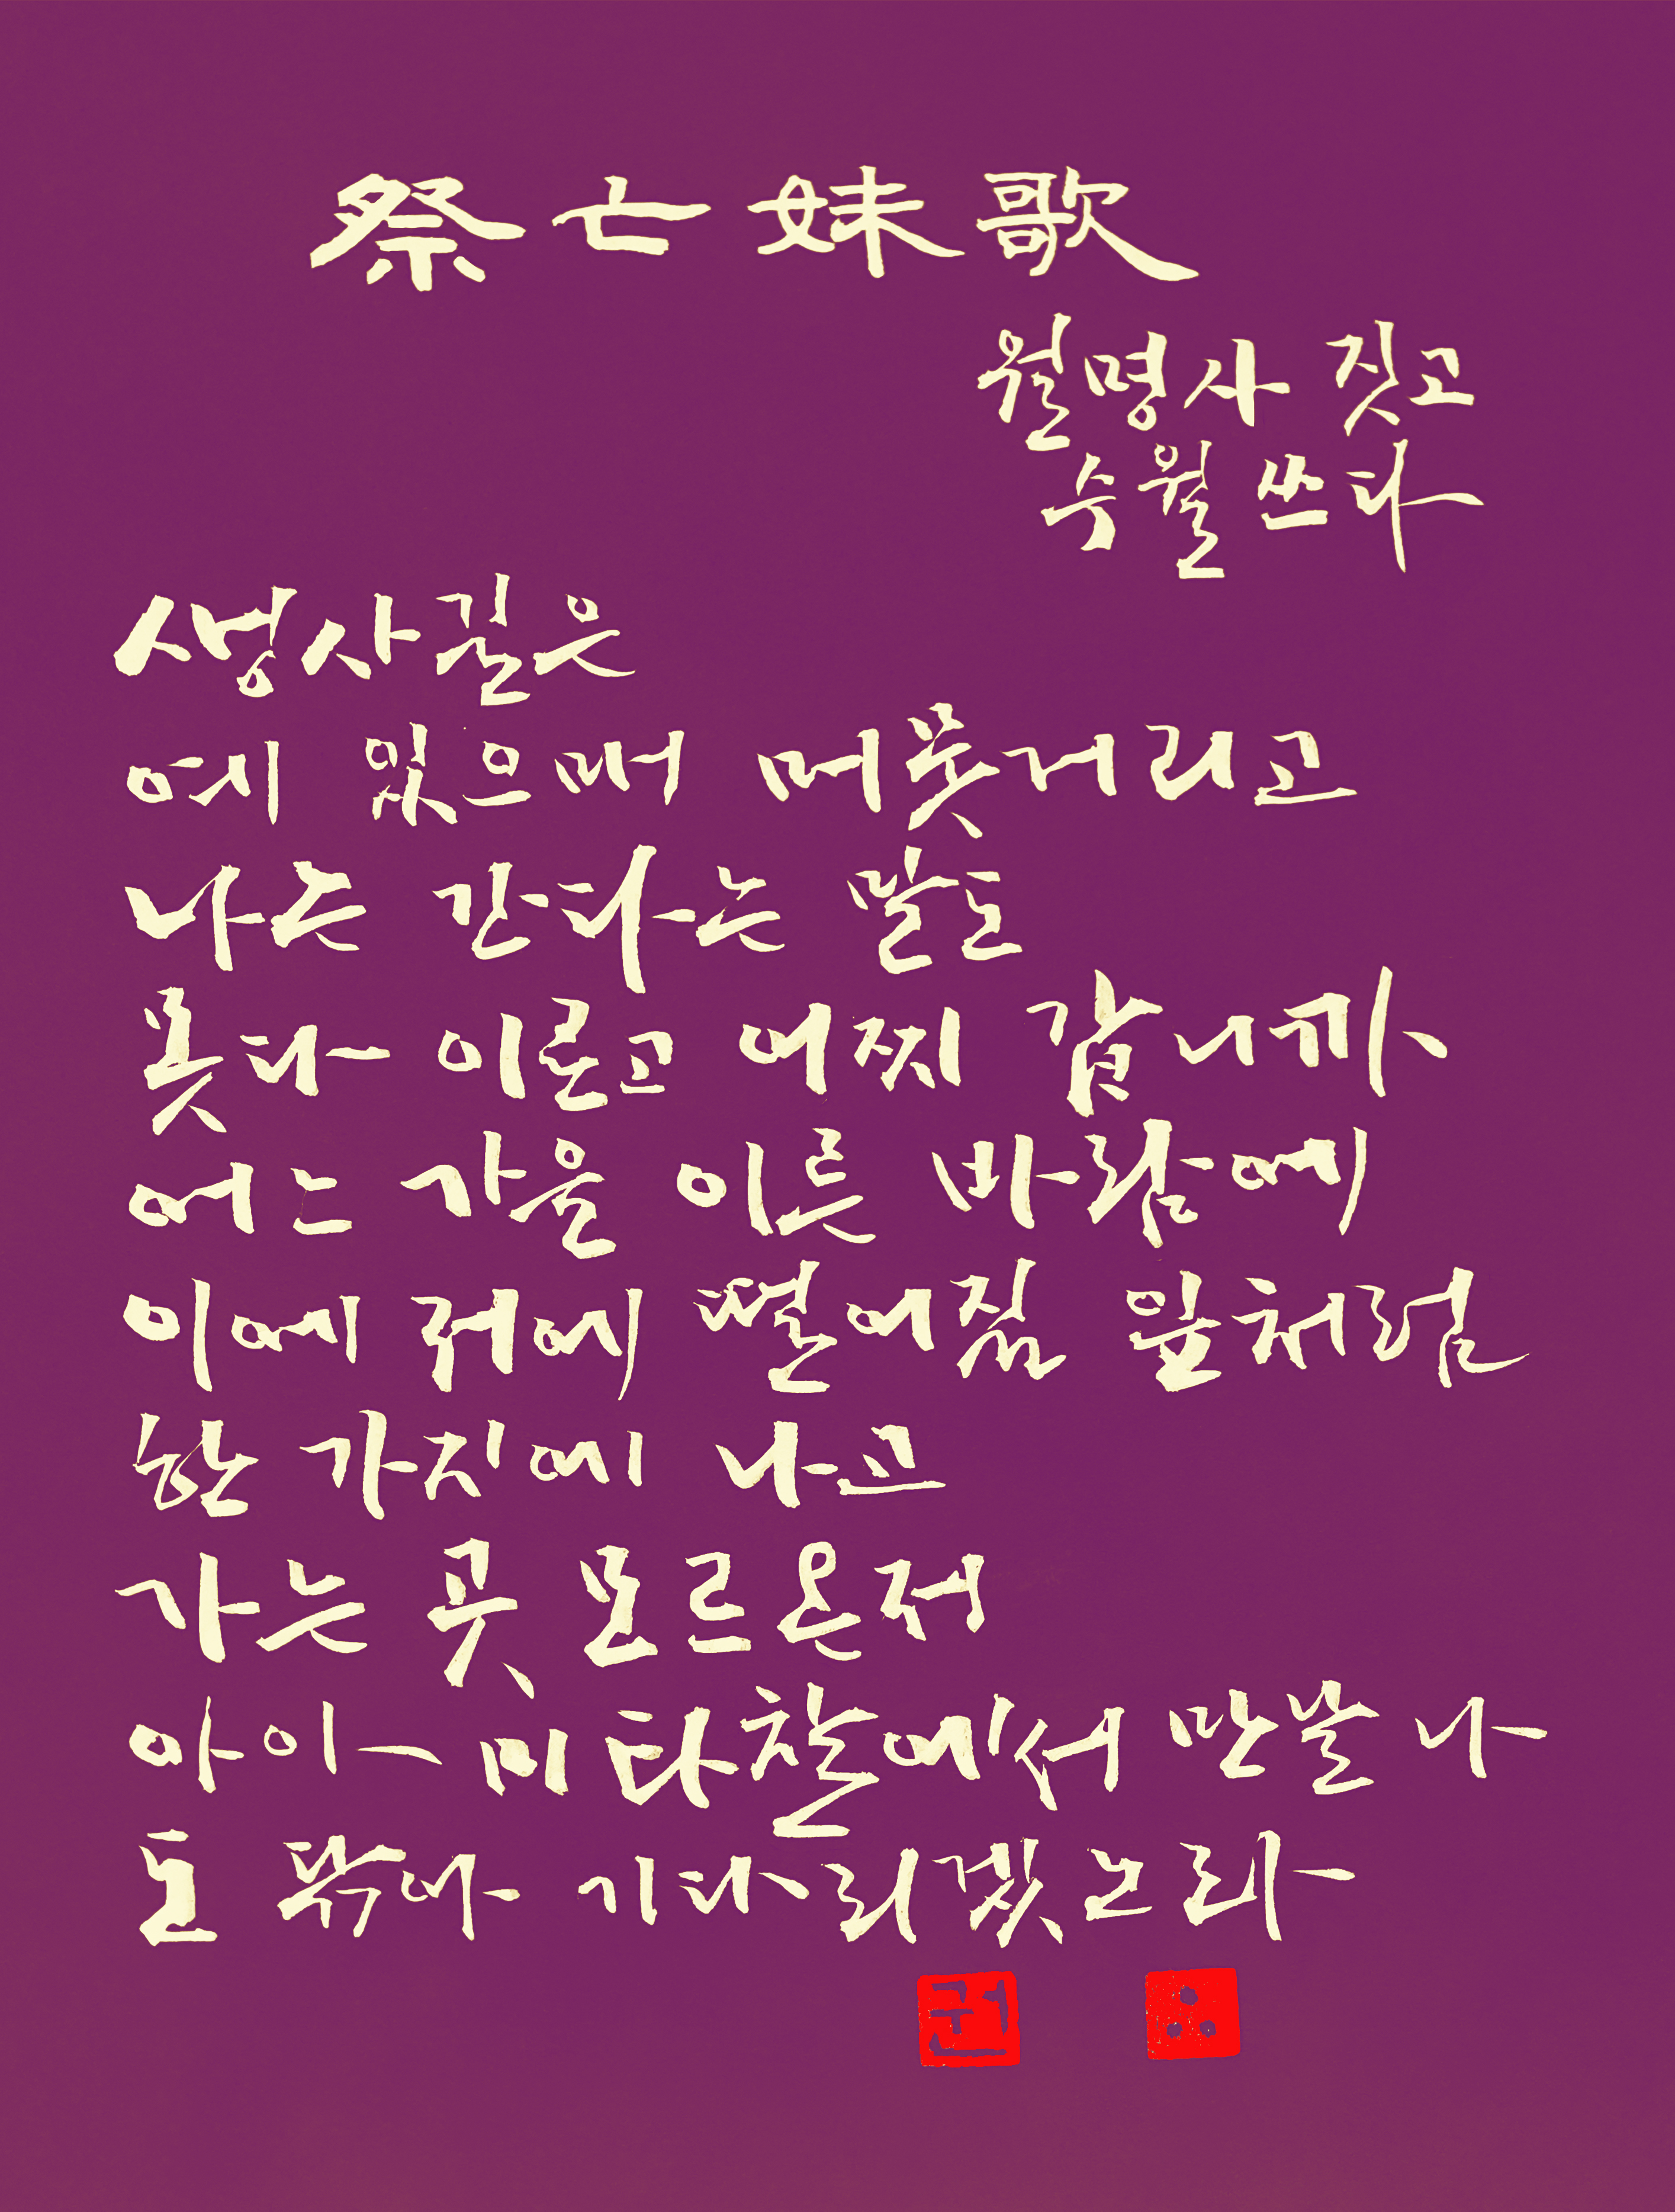 祭亡妹歌
월명사 짓고
수월 쓰다
생사길은
예 있으매 머뭇거리고
나는 간다는 말도
못다 이르고 어찌 갑니까
어느 가을 이른 바람에
이에 저에 떨어질 잎처럼
한 가지에 나고
가는 곳 모르온저
아아 미타찰에서 만날 나
도 닦아 기다리겠노라
권